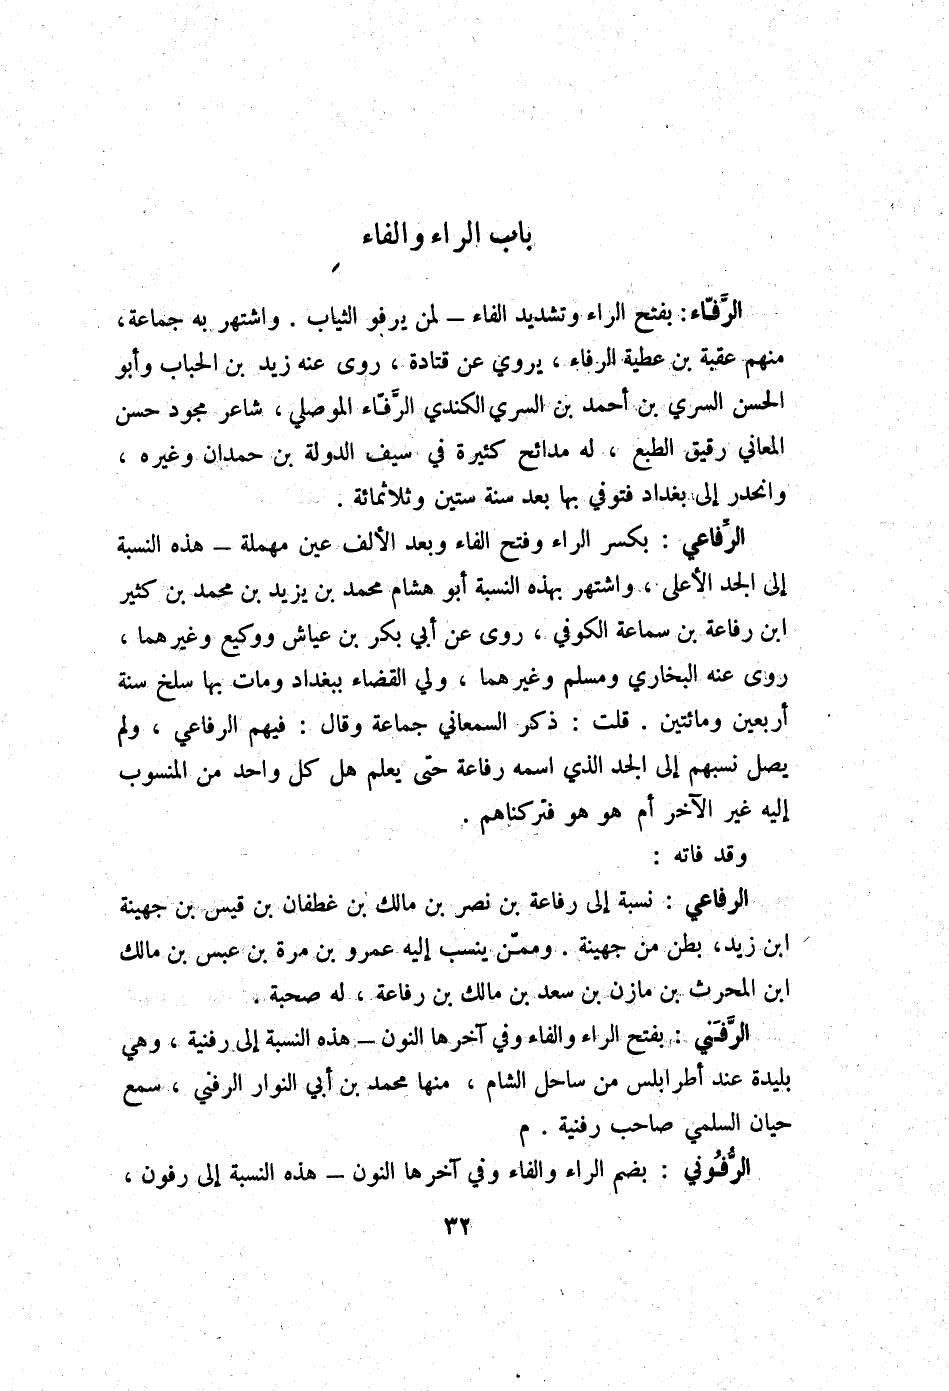 باب الراء والفاء
الرَّفّاء : بفتح الراء وتشديد الفاء ــ لمن يرفو الثياب . واشتهر به جماعة ،
منهم عقبة بن عطية الرفاء ، يروي عن قتادة ، روى عنه زيد بن الحباب وأبو
الحسن السري بن أحمد بن السري الكندي الرَّفاء الموصلي ، شاعر مجود حسن
المعاني رقيق الطبع ، له مدائح كثيرة في سيف الدولة بن حمدان وغيره ،
وانحدر إلى بغداد فتوفي بها بعد سنة ستين وثلاثمائة .
الرِّفاعي : بكسر الراء وفتح الفاء وبعد الألف عين مهملة ــ هذه النسبة
إلى الجد الأعلى ، واشتهر بهذه النسبة أبو هشام محمد بن يزيد بن محمد بن كثير
ابن رفاعة بن سماعة الكوفي ، روى عن أبي بكر بن عياش ووكيع وغيرهما ،
روى عنه البخاري ومسلم وغيرهما ، ولي القضاء ببغداد ومات بها سلخ سنة
أربعين ومائتين . قلت : ذكر السمعاني جماعة وقال : فيهم الرفاعي ، ولم
يصل نسبهم إلى الجد الذي اسمه رفاعة حتى يعلم هل كل واحد من المنسوب
إليه غير الآخر أم هو هو فتركناهم .
وقد فاته :
الرفاعي : نسبة إلى رفاعة بن نصر بن مالك بن غطفان بن قيس بن جهينة
ابن زيد، بطن من جهينة . وممّن ينسب إليه عمرو بن مرة بن عبس بن مالك
ابن المحرث بن مازن بن سعد بن مالك بن رفاعة ، له صحبة .
الرَّفَني : بفتح الراء والفاء وفي آخرها النون ــ هذه النسبة إلى رفنية ، وهي
بليدة عند أطرابلس من ساحل الشام ، منها محمد بن أبي النوار الرفني ، سمع
حيان السلمي صاحب رفنية . م
الرُّفُوني : بضم الراء والفاء وفي آخرها النون ــ هذه النسبة إلى رفون ،
٣٢